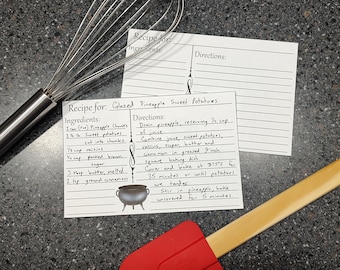 Recipe for:
Ingredients:
Directions:
Recipe for: Glazed Pineapple Sweet Potatoes
Ingredients:
1 can Pineapple Chunks
Sweet potatoes,
cut into chunks
raisins
packed brown
sugar
butter, melted
1 tsp ground cinnamon
Directions:
Drain pineapple, reserving ¼ cup
of juice
Combine juice, sweet potatoes,
raisins, sugar, butter and
cinnamon in greased 9 inch
square baking dish.
Cover and bake at 375°F for
35 minutes or until potatoes
are tender.
Stir in pineapple, bake
uncovered for 5 minutes.